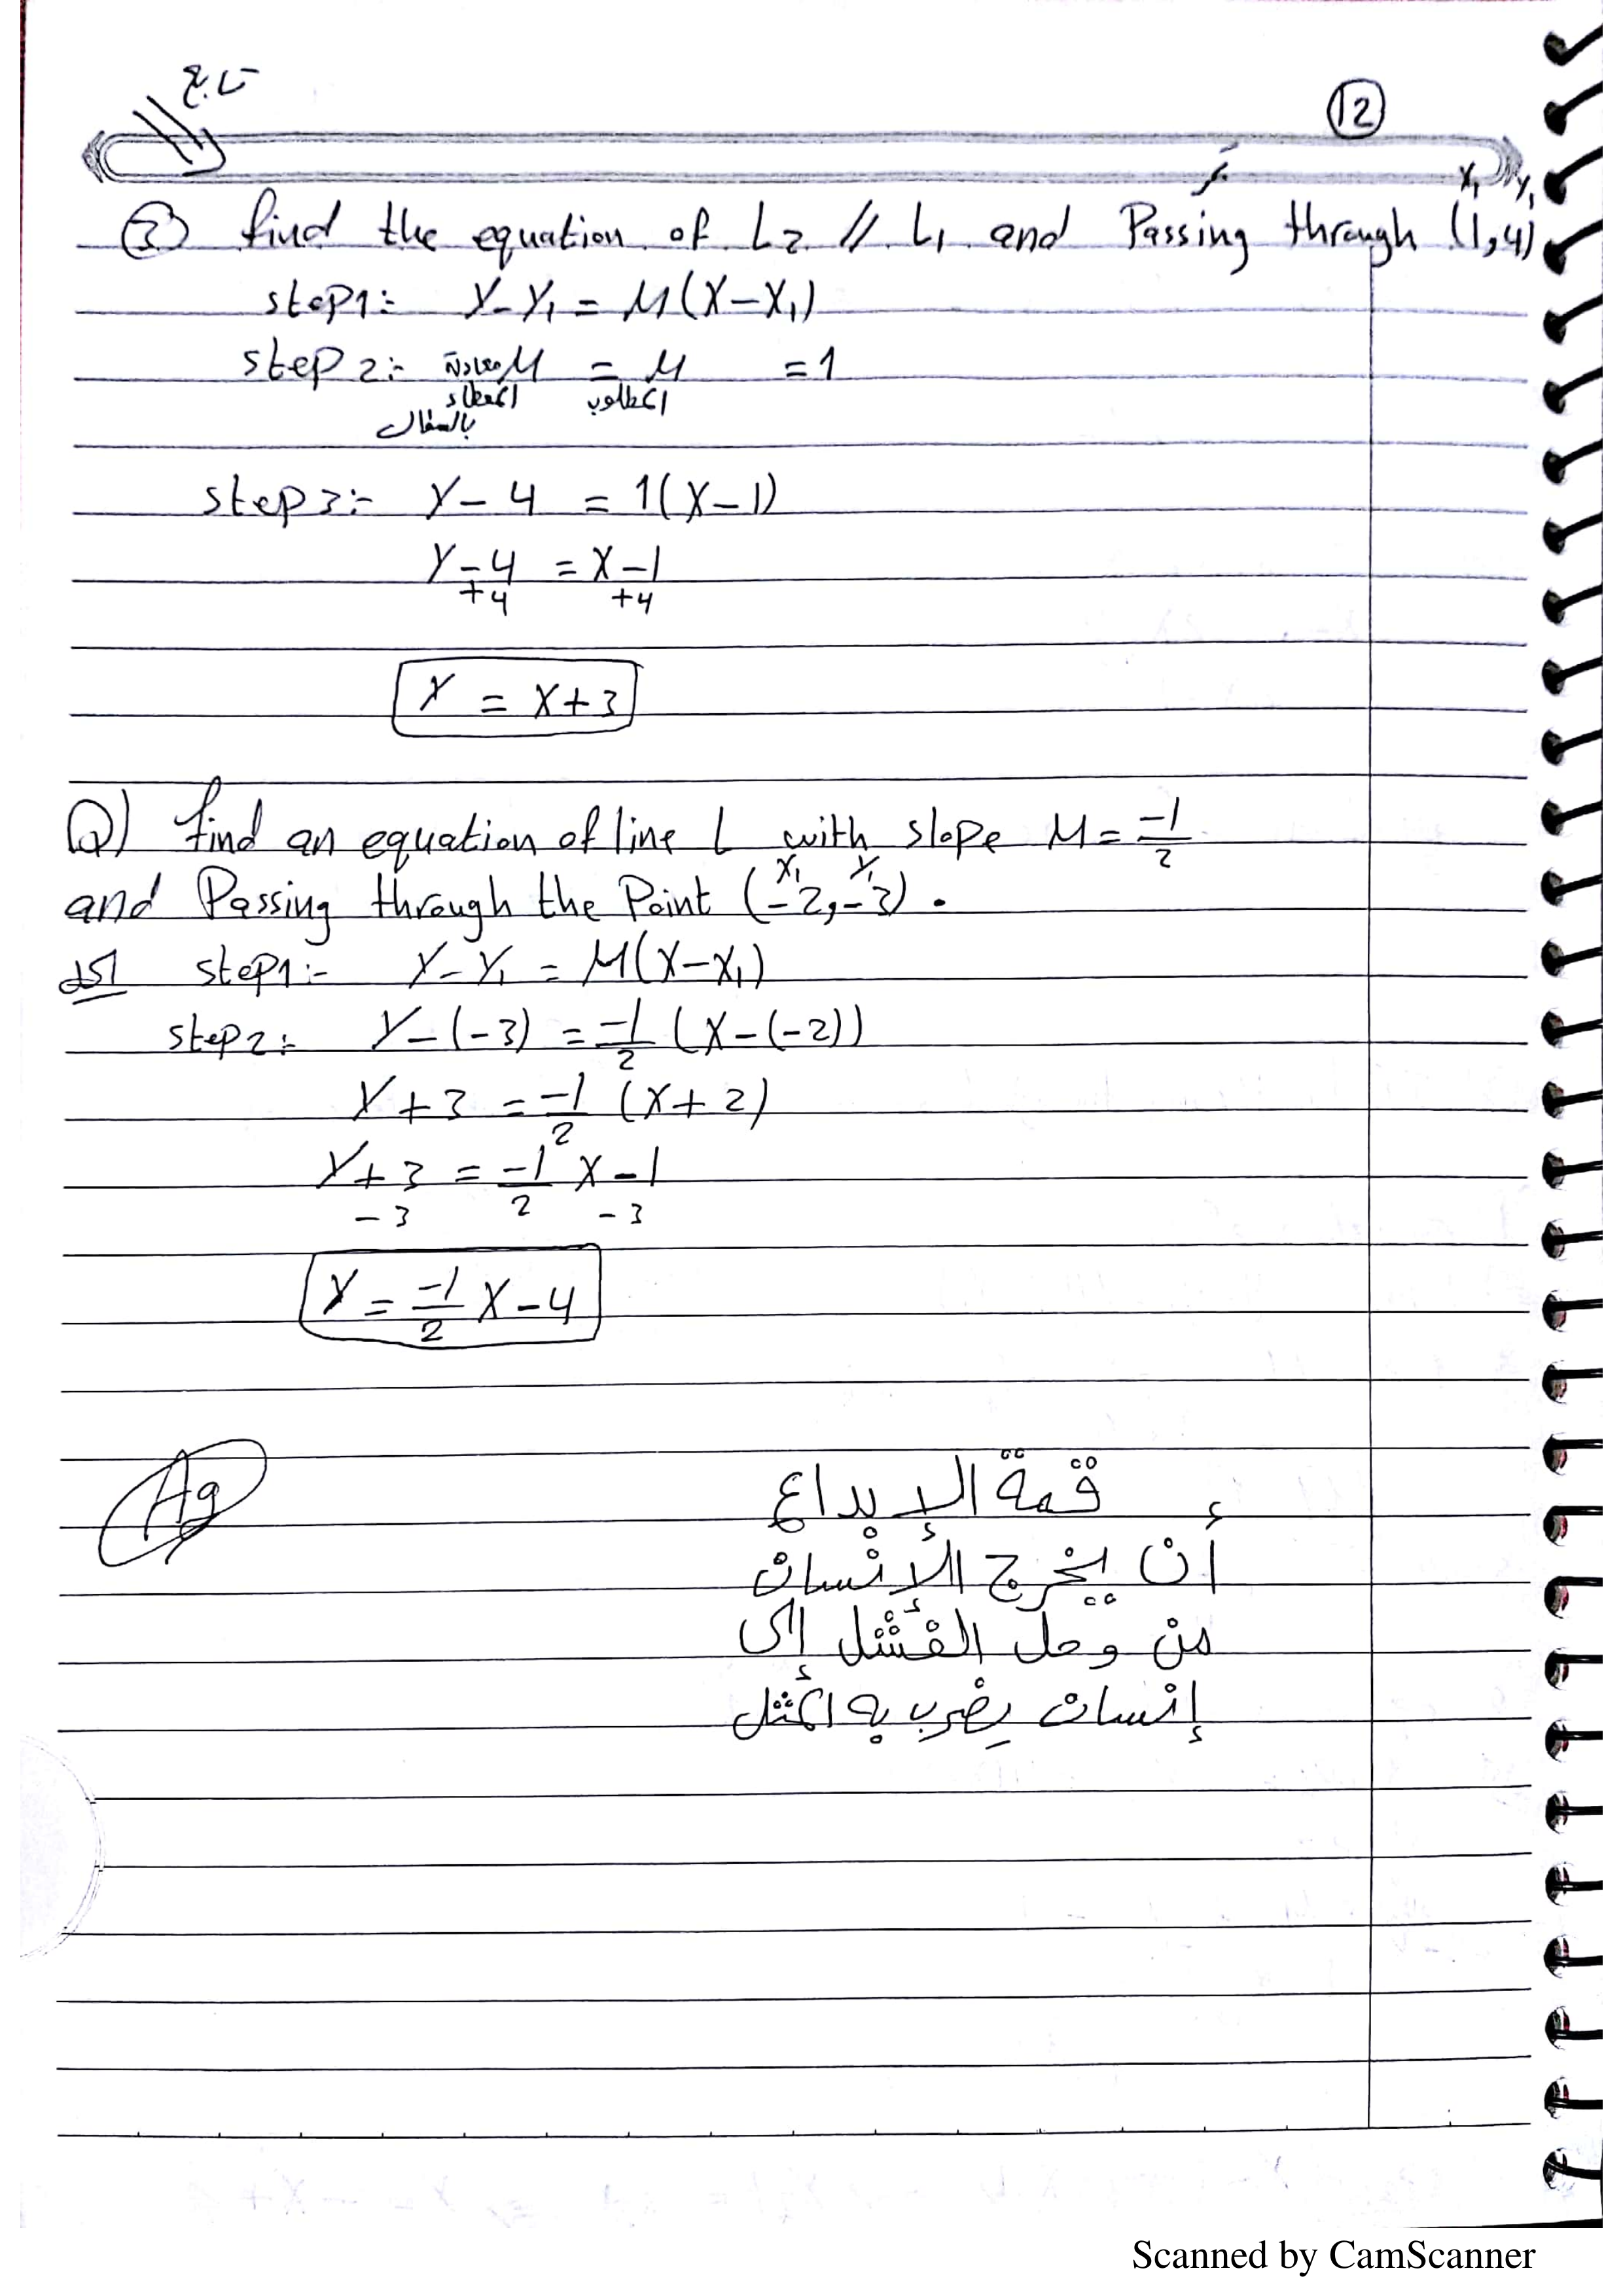 تابع
12
X₁ Y₁
③ find the equation of L2 // L1 and Passing through (1,4)
step1:- Y-Y₁ = M(X-X₁)
step2:- M = M = 1
معادلة
المعطاه المطلوب
بالسؤال
step3:- Y-4 = 1(X-1)
Y-4 = X-1
+4 +4
Y = X+3
Q) find an equation of line L with slope M = -1/2
X₁ Y₁
and Passing through the Point (-2,-3).
الحل step1:- Y-Y₁ = M(X-X₁)
step2:- Y-(-3) = -1/2 (X-(-2))
Y+3 = -1/2 (X+2)
Y+3 = -1/2 X-1
-3 -3
Y = -1/2 X-4
قمة الإبداع
أن يخرج الإنسان
من وحل الفشل إلى
إنسان يضرب به المثل
Scanned by CamScanner